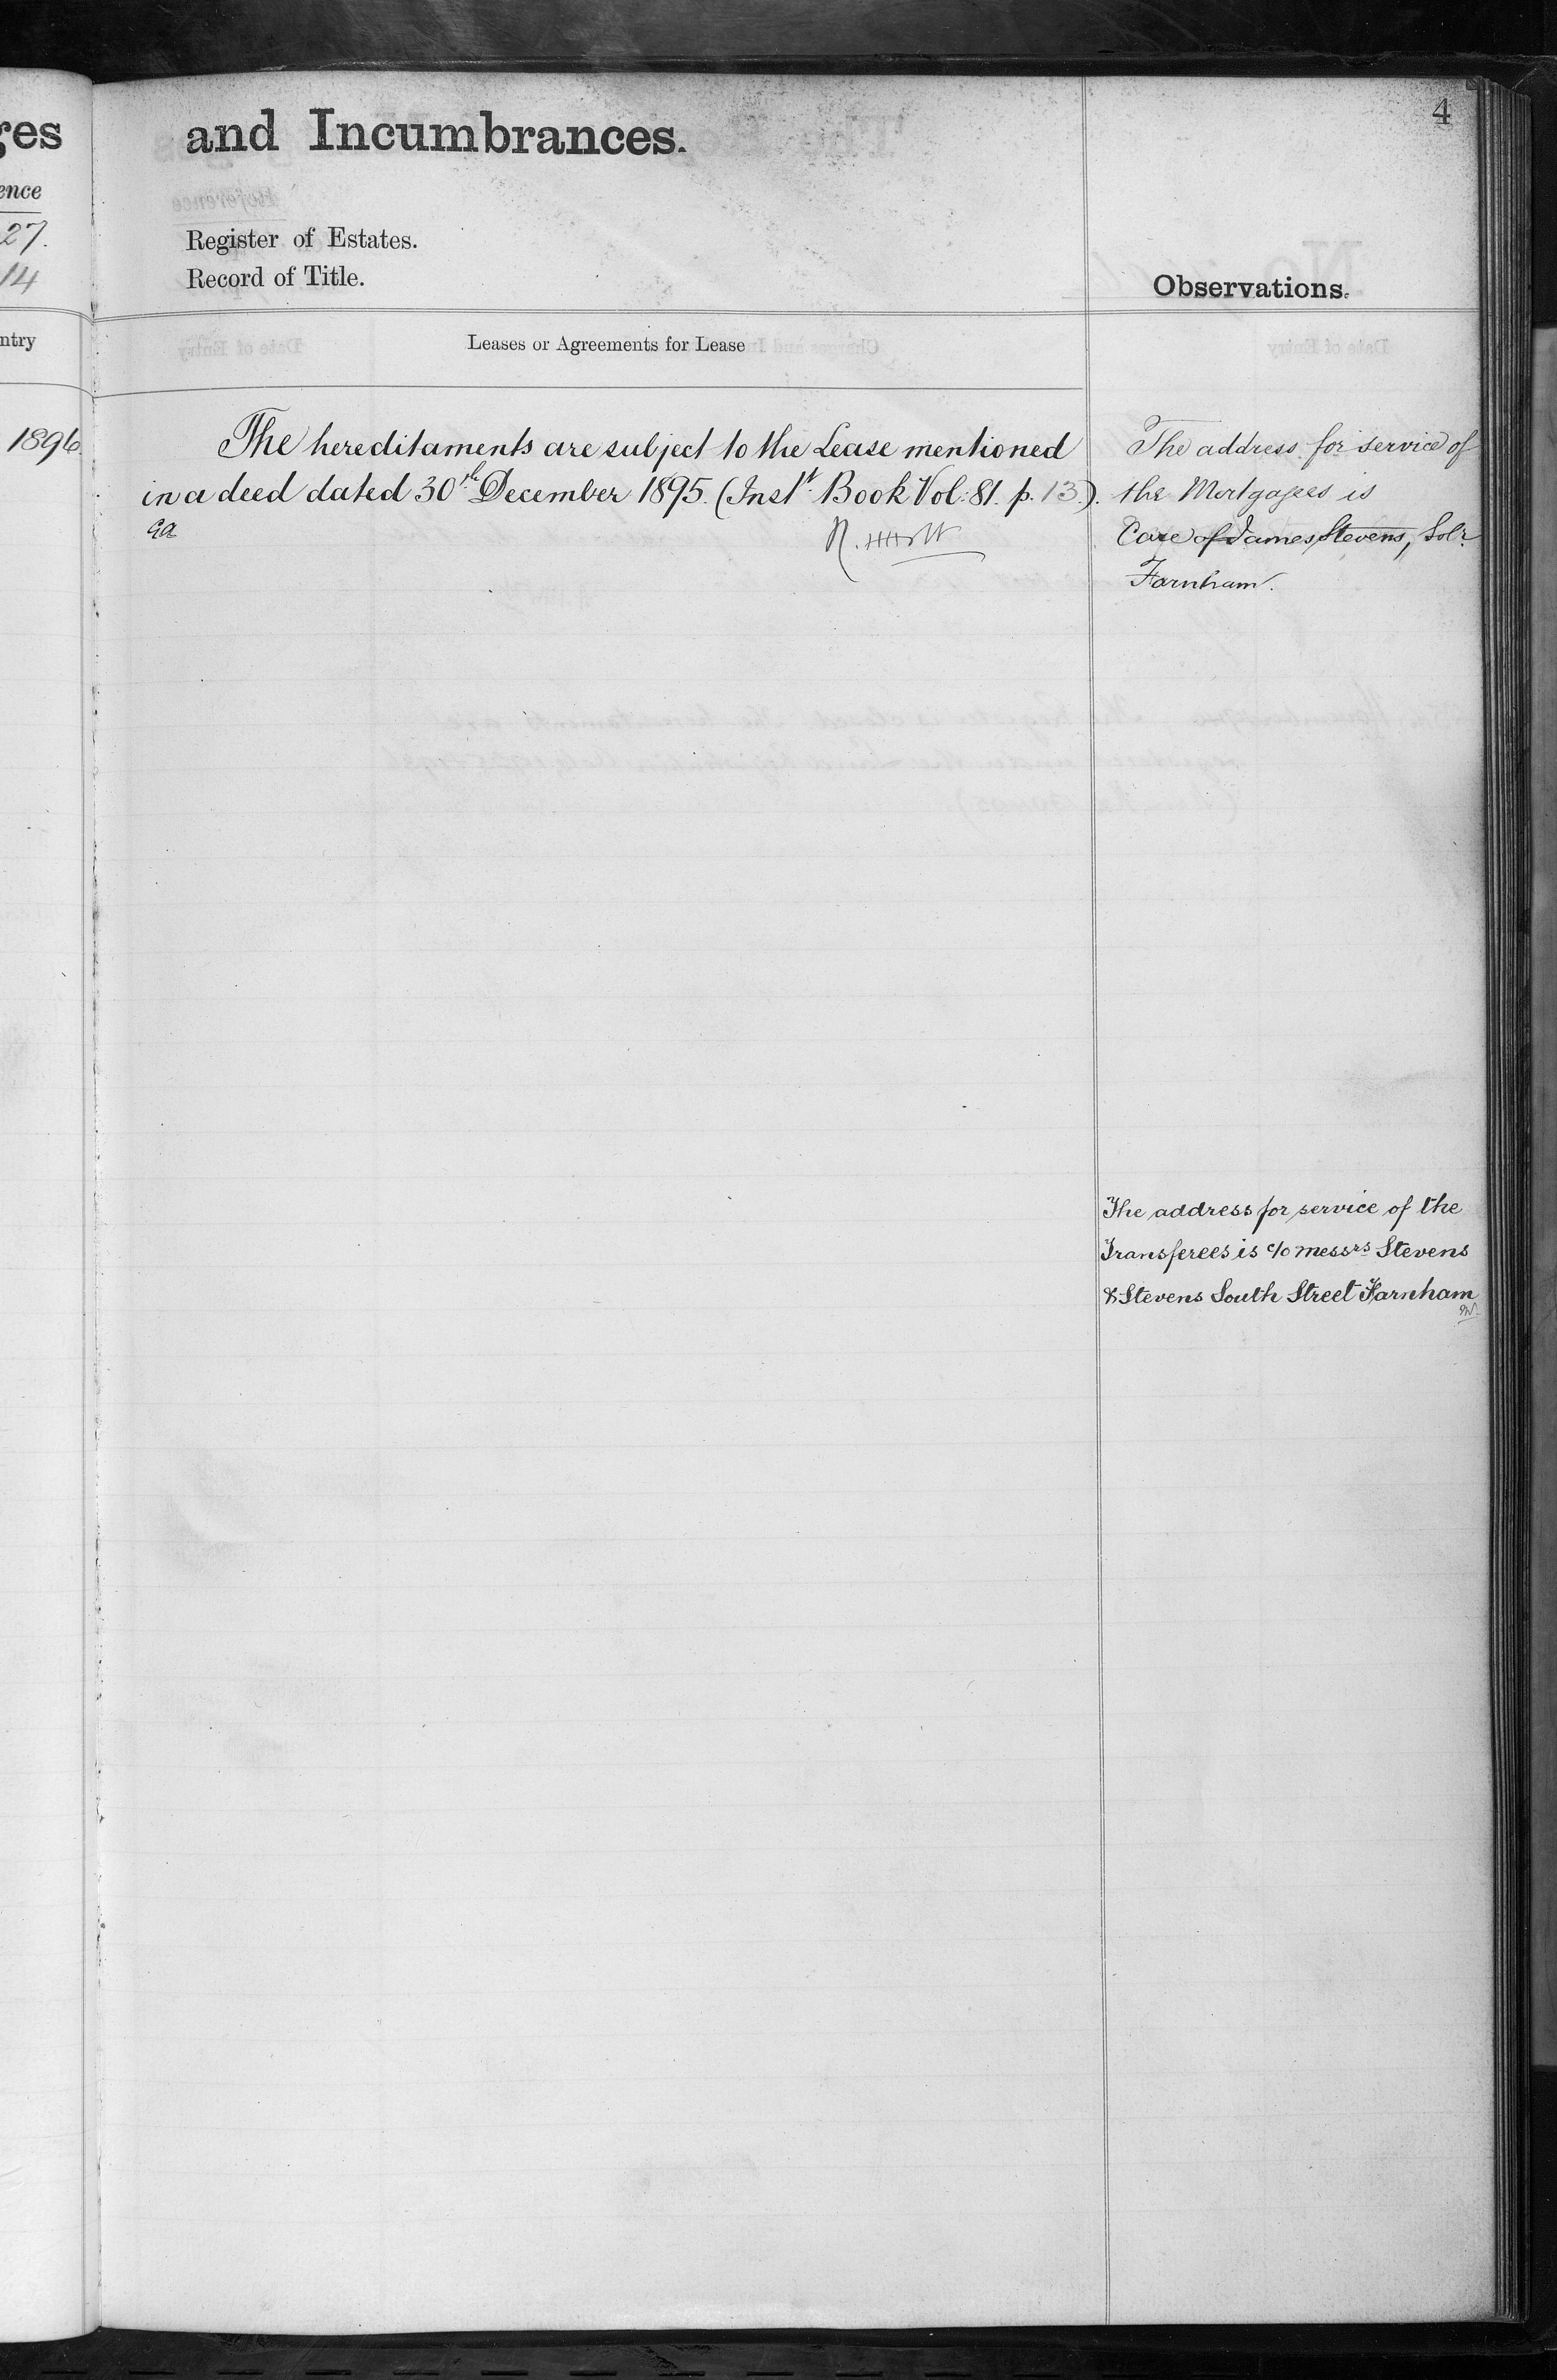 ges
ence
27.
14
ntry
1896
and Incumbrances.
4
Register of Estates.
Record of Title.
Observations.
Leases or Agreements for Lease
The hereditaments are subject to the Lease mentioned
in a deed dated 30th December 1895. (Instt. Book Vol: 81. p. 13.).
The address for service of
the Mortgagees is
Care of James Stevens, Solr.
Farnham.
The address for service of the
Transferees is c/o Messrs Stevens
& Stevens South Street Farnham